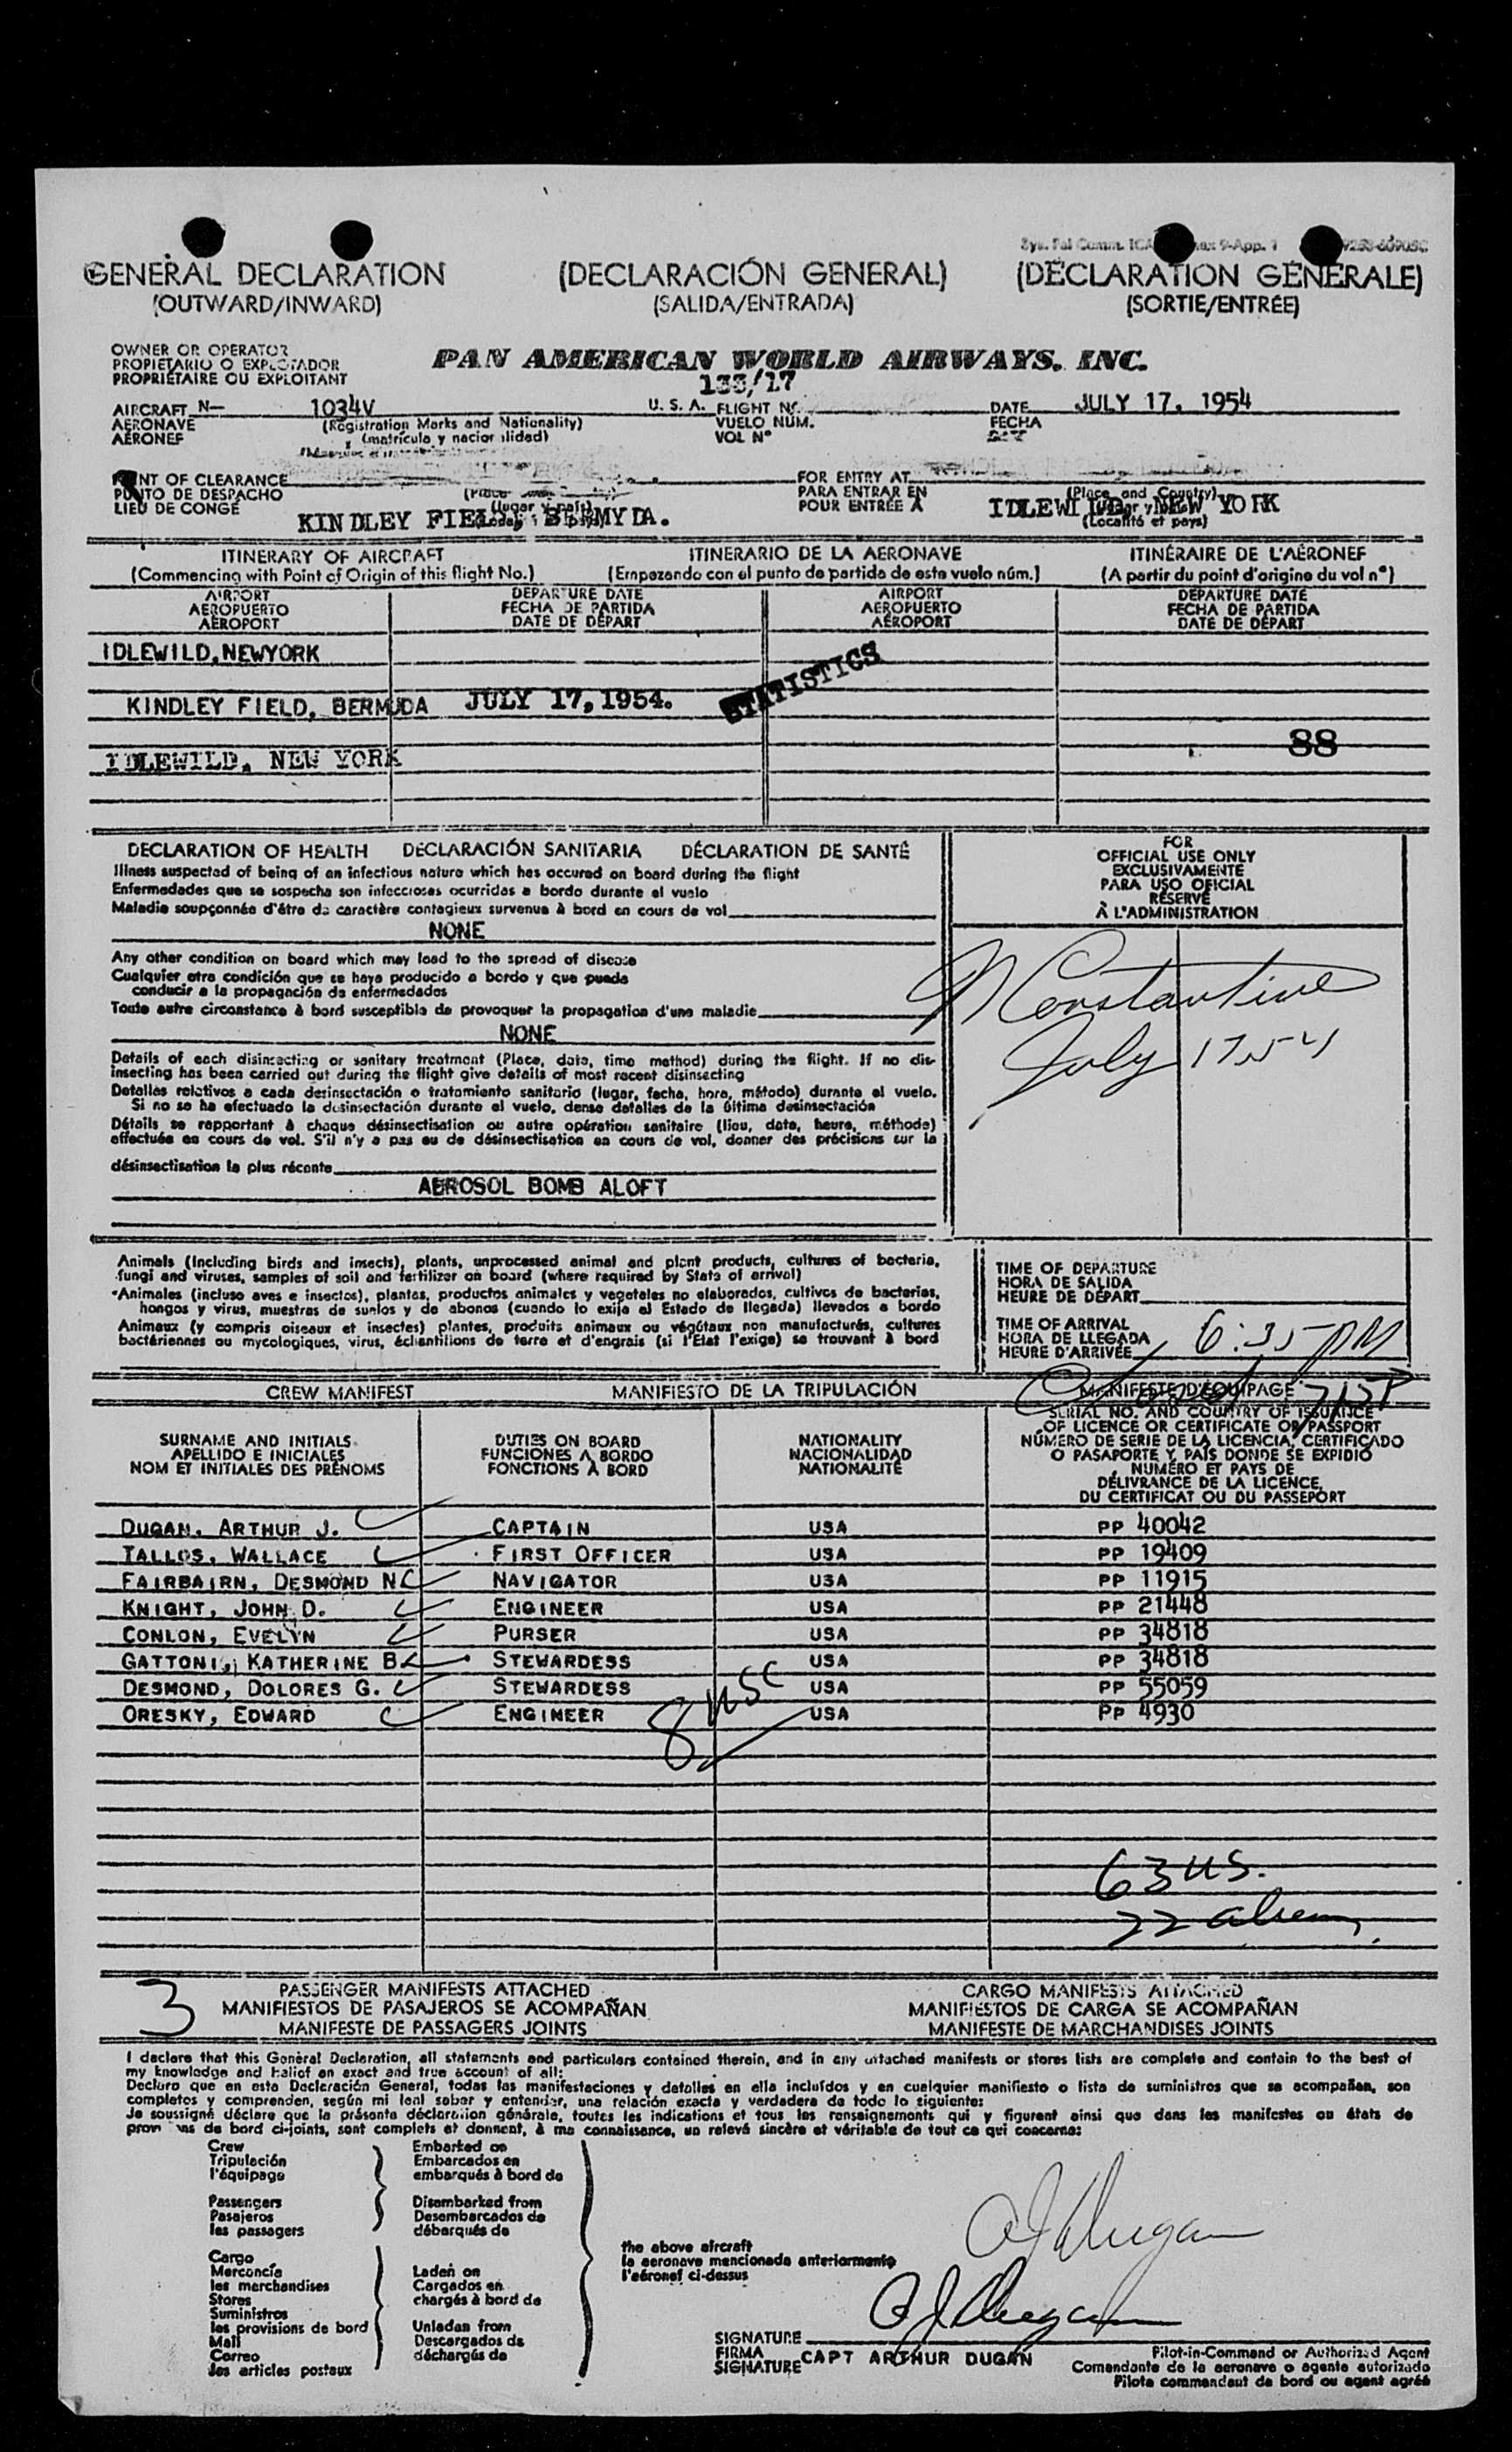 GENERAL DECLARATION (DECLARACIÓN GENERAL) (DÉCLARATION GÉNÉRALE)
(OUTWARD/INWARD) (SALIDA/ENTRADA) (SORTIE/ENTRÉE)
OWNER OR OPERATOR
PROPIETARIO O EXPLOTADOR
PROPRIÉTAIRE OU EXPLOITANT
PAN AMERICAN WORLD AIRWAYS, INC.
133/17
AIRCRAFT N— 1034V U. S. A. FLIGHT No. DATE JULY 17, 1954
AERONAVE (Registration Marks and Nationality) VUELO NÚM. FECHA
AÉRONEF (matrícula y nacionalidad) VOL N° DATE
POINT OF CLEARANCE FOR ENTRY AT
PUNTO DE DESPACHO PARA ENTRAR EN (Place and Country)
LIEU DE CONGÉ POUR ENTRÉE À (Localité et pays)
KINDLEY FIELD, BERMYDA. IDLEWILD, NEW YORK
ITINERARY OF AIRCRAFT ITINERARIO DE LA AERONAVE ITINÉRAIRE DE L'AÉRONEF
(Commencing with Point of Origin of this flight No.) (Empezando con el punto de partida de este vuelo núm.) (A partir du point d'origine du vol n°)
AIRPORT DEPARTURE DATE AIRPORT DEPARTURE DATE
AEROPUERTO FECHA DE PARTIDA AEROPUERTO FECHA DE PARTIDA
AÉROPORT DATE DE DÉPART AÉROPORT DATE DE DÉPART
IDLEWILD,NEWYORK
STATISTICS
KINDLEY FIELD, BERMUDA JULY 17, 1954.
88
IDLEWILD, NEW YORK
DECLARATION OF HEALTH DECLARACIÓN SANITARIA DÉCLARATION DE SANTÉ
Illness suspected of being of an infectious nature which has occured on board during the flight
Enfermedades que se sospecha son infecciosas ocurridas a bordo durante el vuelo
Maladie soupçonnée d'être de caractère contagieux survenue à bord en cours de vol
NONE
Any other condition on board which may lead to the spread of disease
Cualquier otra condición que se haya producido a bordo y que pueda
conducir a la propagación de enfermedades
Toute autre circonstance à bord susceptible de provoquer la propagation d'une maladie
NONE
Details of each disinsecting or sanitary treatment (Place, date, time method) during the flight. If no dis-
insecting has been carried out during the flight give details of most recent disinsecting
Detalles relativos a cada desinsectación o tratamiento sanitario (lugar, fecha, hora, método) durante el vuelo.
Si no se ha efectuado la desinsectación durante el vuelo, dense detalles de la última desinsectación
Détails se rapportant à chaque désinsectisation ou autre opération sanitaire (lieu, date, heure, méthode)
effectuée en cours de vol. S'il n'y a pas eu de désinsectisation en cours de vol, donner des précisions sur la
désinsectisation la plus récente
AEROSOL BOMB ALOFT
FOR
OFFICIAL USE ONLY
EXCLUSIVAMENTE
PARA USO OFICIAL
RÉSERVÉ
À L'ADMINISTRATION
M Constantine
July 17 54
Animals (Including birds and insects), plants, unprocessed animal and plant products, cultures of bacteria,
fungi and viruses, samples of soil and fertilizer on board (where required by State of arrival)
Animales (incluso aves e insectos), plantas, productos animales y vegetales no elaborados, cultivos de bacterias,
hongos y virus, muestras de suelos y de abonos (cuando lo exija el Estado de llegada) llevados a bordo
Animaux (y compris oiseaux et insectes) plantes, produits animaux ou végétaux non manufacturés, cultures
bactériennes ou mycologiques, virus, échantillons de terre et d'engrais (si l'État l'exige) se trouvant à bord
TIME OF DEPARTURE
HORA DE SALIDA
HEURE DE DÉPART
TIME OF ARRIVAL
HORA DE LLEGADA 6:35 PM
HEURE D'ARRIVÉE
CREW MANIFEST MANIFIESTO DE LA TRIPULACIÓN MANIFESTE D'ÉQUIPAGE
SURNAME AND INITIALS
APELLIDO E INICIALES
NOM ET INITIALES DES PRÉNOMS
DUTIES ON BOARD
FUNCIONES A BORDO
FONCTIONS À BORD
NATIONALITY
NACIONALIDAD
NATIONALITÉ
SERIAL NO. AND COUNTRY OF ISSUANCE
OF LICENCE OR CERTIFICATE OR PASSPORT
NÚMERO DE SERIE DE LA LICENCIA, CERTIFICADO
O PASAPORTE Y PAÍS DONDE SE EXPIDIÓ
NUMÉRO ET PAYS DE
DÉLIVRANCE DE LA LICENCE,
DU CERTIFICAT OU DU PASSEPORT
DUGAN, ARTHUR J. CAPTAIN USA PP 40042
TALLOS, WALLACE FIRST OFFICER USA PP 19409
FAIRBAIRN, DESMOND N NAVIGATOR USA PP 11915
KNIGHT, JOHN D. ENGINEER USA PP 21448
CONLON, EVELYN PURSER USA PP 34818
GATTONI, KATHERINE B STEWARDESS USA PP 34818
DESMOND, DOLORES G. STEWARDESS USA PP 55059
ORESKY, EDWARD ENGINEER USA PP 4930
8 USC
63 US.
22 aliens
3
PASSENGER MANIFESTS ATTACHED CARGO MANIFESTS ATTACHED
MANIFIESTOS DE PASAJEROS SE ACOMPAÑAN MANIFIESTOS DE CARGA SE ACOMPAÑAN
MANIFESTE DE PASSAGERS JOINTS MANIFESTE DE MARCHANDISES JOINTS
I declare that this General Declaration, all statements and particulars contained therein, and in any attached manifests or stores lists are complete and contain to the best of
my knowledge and belief an exact and true account of all:
Declaro que en esta Declaración General, todas las manifestaciones y detalles en ella incluídos y en cualquier manifiesto o lista de suministros que se acompañan, son
completos y comprenden, según mi leal saber y entender, una relación exacta y verdadera de todo lo siguiente:
Je soussigné déclare que la présente déclaration générale, toutes les indications et tous les renseignements qui y figurent ainsi que dans les manifestes ou états de
provisions de bord ci-joints, sont complets et donnent, à ma connaissance, un relevé sincère et véritable de tout ce qui concerne:
Crew Embarked on
Tripulación Embarcados en
l'équipage embarqués à bord de
Passengers Disembarked from
Pasajeros Desembarcados de
les passagers débarqués de
Cargo
Mercancía Laden on
les marchandises Cargados en
Stores chargés à bord de
Suministros
les provisions de bord Unladen from
Mail Descargados de
Correo déchargés de
les articles postaux
the above aircraft
la aeronave mencionada anteriormente
l'aéronef ci-dessus
A J Dugan
A J Dugan
SIGNATURE
FIRMA
SIGNATURE
CAPT ARTHUR DUGAN
Pilot-in-Command or Authorized Agent
Comandante de la aeronave o agente autorizado
Pilote commandant de bord ou agent agréé